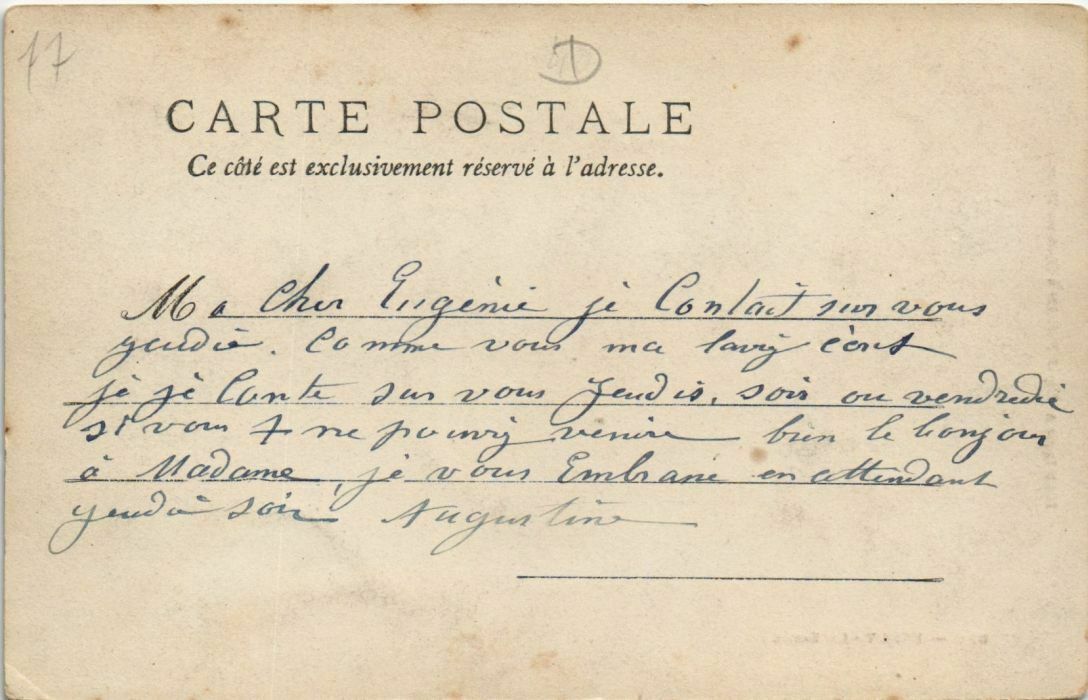 17
CARTE POSTALE
Ce côté est exclusivement réservé à l'adresse.
Ma Cher Eugénie je Contait sur vous
yeudie. Comme vous ma lavez écrit
je je Conte sur vous Jeudis, soir ou vendredie
si vous ne pouvez venire bien le bonjour
à Madame, je vous Embrasse en attendant
yeudie soir Augustine